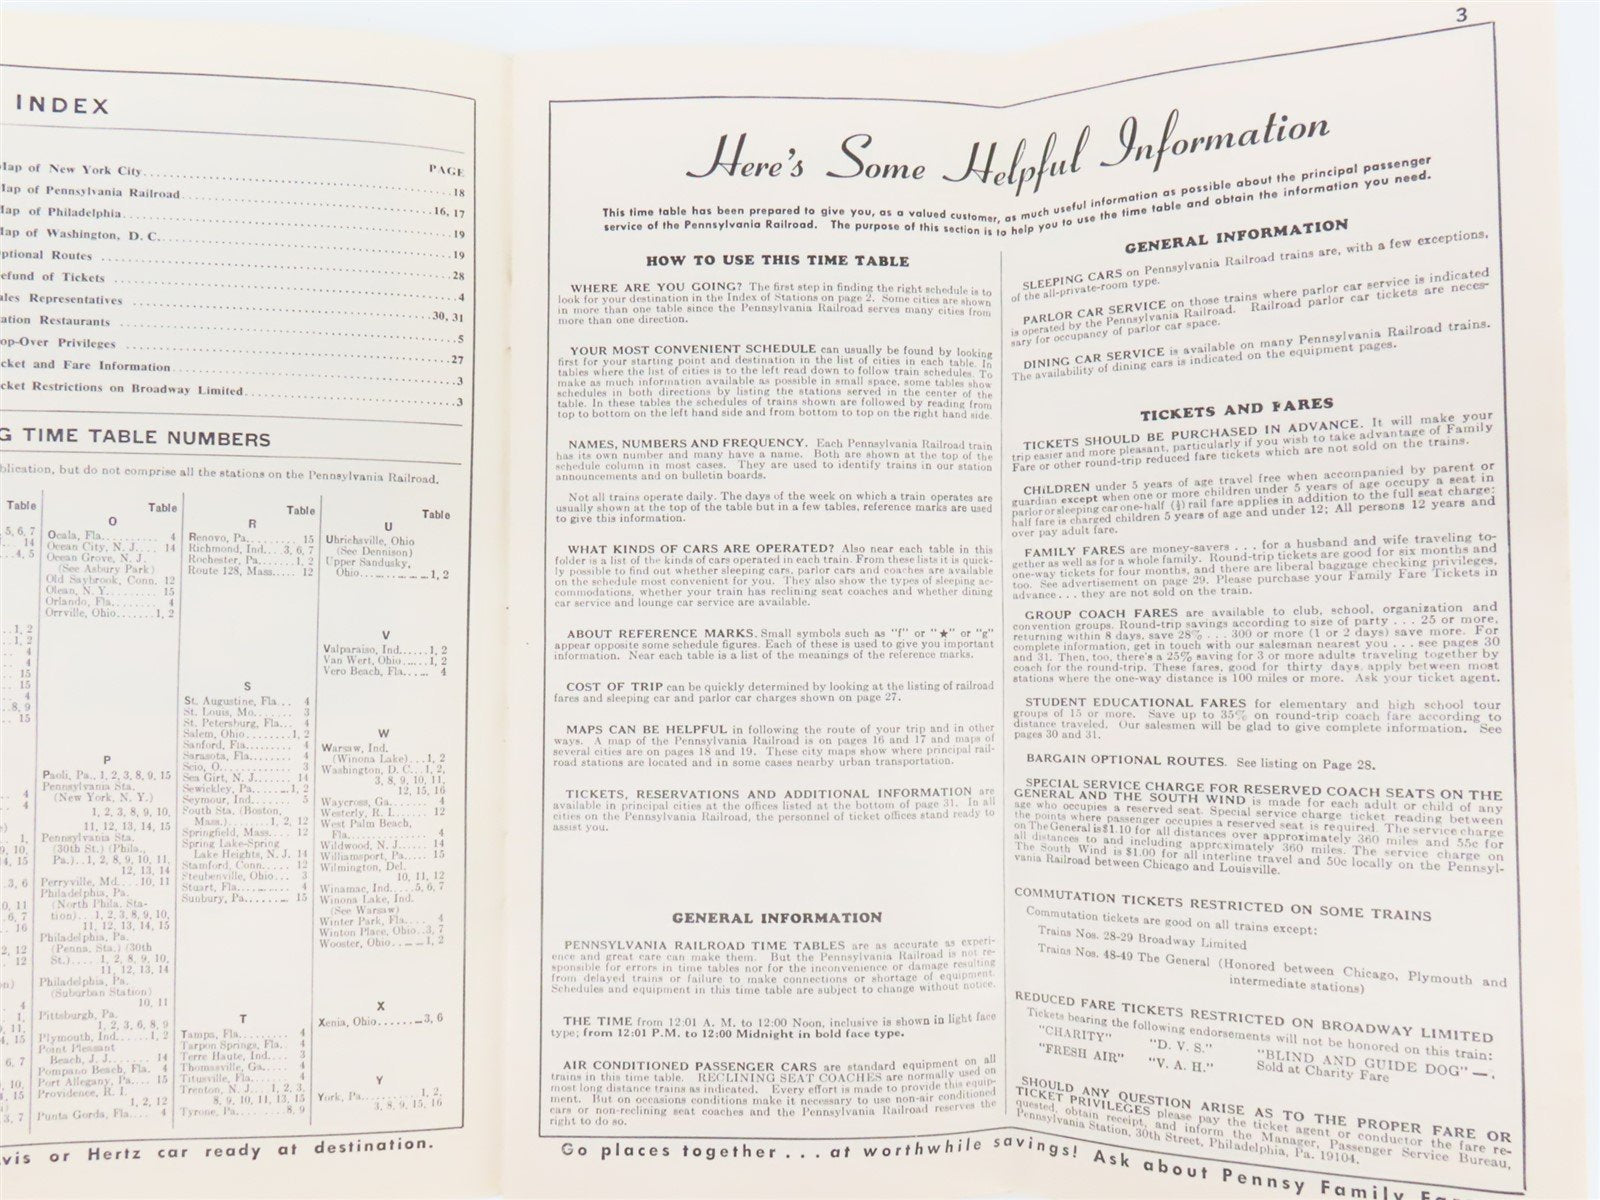 INDEX
PAGE
Map of New York City 18
Map of Pennsylvania Railroad 16, 17
Map of Philadelphia 19
Map of Washington, D. C. 19
ptional Routes 28
efund of Tickets 4
ales Representatives 30, 31
ation Restaurants 5
op-Over Privileges 27
cket and Fare Information 3
cket Restrictions on Broadway Limited 3
G TIME TABLE NUMBERS
blication, but do not comprise all the stations on the Pennsylvania Railroad.
Table
5, 6, 7
14
4, 5
1, 2
1, 2
4
4
15
15
4
8, 9
15
4
4
1,
9, 10,
14, 15
3, 6
10, 11
6, 7
16
2, 12
12
4
1,
6, 7
3, 7
Table
O
Ocala, Fla. 4
Ocean City, N. J. 14
Ocean Grove, N. J.
(See Asbury Park)
Old Saybrook, Conn. 12
Olean, N. Y. 15
Orlando, Fla. 4
Orrville, Ohio 1, 2
P
Paoli, Pa. 1, 2, 3, 8, 9, 15
Pennsylvania Sta.
(New York, N. Y.)
1, 2, 3, 8, 9, 10,
11, 12, 13, 14, 15
Pennsylvania Sta.
(30th St.) (Phila.,
Pa.) 1, 2, 8, 9, 10, 11,
12, 13, 14
Perryville, Md. 10, 11
Philadelphia, Pa.
(North Phila. Sta-
tion) 1, 2, 3, 8, 9, 10,
11, 12, 13, 14, 15
Philadelphia, Pa.
(Penna. Sta.) (30th
St.) 1, 2, 8, 9, 10,
11, 12, 13, 14
Philadelphia, Pa.
(Suburban Station)
10, 11
Pittsburgh, Pa.
1, 2, 3, 6, 8, 9
Plymouth, Ind. 1, 2
Point Pleasant
Beach, J. J. 14
Pompano Beach, Fla. 4
Port Allegany, Pa. 15
Providence, R. I.
1, 2, 12
Punta Gorda, Fla. 4
Table
R
Renovo, Pa. 15
Richmond, Ind. 3, 6, 7
Rochester, Pa. 1, 2
Route 128, Mass. 12
S
St. Augustine, Fla. 4
St. Louis, Mo. 3
St. Petersburg, Fla. 4
Salem, Ohio 1, 2
Sanford, Fla. 4
Sarasota, Fla. 4
Scio, O. 3
Sea Girt, N. J. 14
Sewickley, Pa. 1, 2
Seymour, Ind. 5
South Sta. (Boston,
Mass.) 1, 2, 12
Springfield, Mass. 12
Spring Lake-Spring
Lake Heights, N. J. 14
Stamford, Conn. 12
Steubenville, Ohio 3
Stuart, Fla. 4
Sunbury, Pa. 15
T
Tampa, Fla. 4
Tarpon Springs, Fla. 4
Terre Haute, Ind. 3
Thomasville, Ga. 4
Titusville, Fla. 4
Trenton, N. J. 1, 2, 3,
8, 9, 10, 11, 13, 15
Tyrone, Pa. 8, 9
Table
U
Uhrichsville, Ohio
(See Dennison)
Upper Sandusky,
Ohio 1, 2
V
Valparaiso, Ind. 1, 2
Van Wert, Ohio 1, 2
Vero Beach, Fla. 4
W
Warsaw, Ind.
(Winona Lake) 1, 2
Washington, D. C. 1, 2,
3, 8, 9, 10, 11,
12, 15, 16
Waycross, Ga. 4
Westerly, R. I. 12
West Palm Beach,
Fla. 4
Wildwood, N. J. 14
Williamsport, Pa. 15
Wilmington, Del.
10, 11, 12
Winamac, Ind. 5, 6, 7
Winona Lake, Ind.
(See Warsaw)
Winter Park, Fla. 4
Winton Place, Ohio 3, 7
Wooster, Ohio 1, 2
X
Xenia, Ohio 3, 6
Y
York, Pa. 1, 2,
3, 8, 9, 15, 16
vis or Hertz car ready at destination.
3
Here's Some Helpful Information
This time table has been prepared to give you, as a valued customer, as much useful information as possible about the principal passenger
service of the Pennsylvania Railroad. The purpose of this section is to help you to use the time table and obtain the information you need.
HOW TO USE THIS TIME TABLE
WHERE ARE YOU GOING? The first step in finding the right schedule is to
look for your destination in the Index of Stations on page 2. Some cities are shown
in more than one table since the Pennsylvania Railroad serves many cities from
more than one direction.
YOUR MOST CONVENIENT SCHEDULE can usually be found by looking
first for your starting point and destination in the list of cities in each table. In
tables where the list of cities is to the left read down to follow train schedules. To
make as much information available as possible in small space, some tables show
schedules in both directions by listing the stations served in the center of the
table. In these tables the schedules of trains shown are followed by reading from
top to bottom on the left hand side and from bottom to top on the right hand side.
NAMES, NUMBERS AND FREQUENCY. Each Pennsylvania Railroad train
has its own number and many have a name. Both are shown at the top of the
schedule column in most cases. They are used to identify trains in our station
announcements and on bulletin boards.
Not all trains operate daily. The days of the week on which a train operates are
usually shown at the top of the table but in a few tables, reference marks are used
to give this information.
WHAT KINDS OF CARS ARE OPERATED? Also near each table in this
folder is a list of the kinds of cars operated in each train. From these lists it is quick-
ly possible to find out whether sleeping cars, parlor cars and coaches are available
on the schedule most convenient for you. They also show the types of sleeping ac-
commodations, whether your train has reclining seat coaches and whether dining
car service and lounge car service are available.
ABOUT REFERENCE MARKS. Small symbols such as "f" or "★" or "g"
appear opposite some schedule figures. Each of these is used to give you important
information. Near each table is a list of the meanings of the reference marks.
COST OF TRIP can be quickly determined by looking at the listing of railroad
fares and sleeping car and parlor car charges shown on page 27.
MAPS CAN BE HELPFUL in following the route of your trip and in other
ways. A map of the Pennsylvania Railroad is on pages 16 and 17 and maps of
several cities are on pages 18 and 19. These city maps show where principal rail-
road stations are located and in some cases nearby urban transportation.
TICKETS, RESERVATIONS AND ADDITIONAL INFORMATION are
available in principal cities at the offices listed at the bottom of page 31. In all
cities on the Pennsylvania Railroad, the personnel of ticket offices stand ready to
assist you.
GENERAL INFORMATION
PENNSYLVANIA RAILROAD TIME TABLES are as accurate as experi-
ence and great care can make them. But the Pennsylvania Railroad is not re-
sponsible for errors in time tables nor for the inconvenience or damage resulting
from delayed trains or failure to make connections or shortage of equipment.
Schedules and equipment in this time table are subject to change without notice.
THE TIME from 12:01 A. M. to 12:00 Noon, inclusive is shown in light face
type; from 12:01 P.M. to 12:00 Midnight in bold face type.
AIR CONDITIONED PASSENGER CARS are standard equipment on all
trains in this time table. RECLINING SEAT COACHES are normally used on
most long distance trains as indicated. Every effort is made to provide this equip-
ment. But on occasions conditions make it necessary to use non-air conditioned
cars or non-reclining seat coaches and the Pennsylvania Railroad reserves the
right to do so.
GENERAL INFORMATION
SLEEPING CARS on Pennsylvania Railroad trains are, with a few exceptions,
of the all-private-room type.
PARLOR CAR SERVICE on those trains where parlor car service is indicated
is operated by the Pennsylvania Railroad. Railroad parlor car tickets are neces-
sary for occupancy of parlor car space.
DINING CAR SERVICE is available on many Pennsylvania Railroad trains.
The availability of dining cars is indicated on the equipment pages.
TICKETS AND FARES
TICKETS SHOULD BE PURCHASED IN ADVANCE. It will make your
trip easier and more pleasant, particularly if you wish to take advantage of Family
Fare or other round-trip reduced fare tickets which are not sold on the trains.
CHILDREN under 5 years of age travel free when accompanied by parent or
guardian except when one or more children under 5 years of age occupy a seat in
parlor or sleeping car one-half (½) rail fare applies in addition to the full seat charge;
half fare is charged children 5 years of age and under 12; All persons 12 years and
over pay adult fare.
FAMILY FARES are money-savers . . . for a husband and wife traveling to-
gether as well as for a whole family. Round-trip tickets are good for six months and
one-way tickets for four months, and there are liberal baggage checking privileges,
too. See advertisement on page 29. Please purchase your Family Fare Tickets in
advance . . . they are not sold on the train.
GROUP COACH FARES are available to club, school, organization and
convention groups. Round-trip savings according to size of party . . . 25 or more,
returning within 8 days, save 28% . . . 300 or more (1 or 2 days) save more. For
complete information, get in touch with our salesman nearest you . . . see pages 30
and 31. Then, too, there's a 25% saving for 3 or more adults traveling together by
coach for the round-trip. These fares, good for thirty days, apply between most
stations where the one-way distance is 100 miles or more. Ask your ticket agent.
STUDENT EDUCATIONAL FARES for elementary and high school tour
groups of 15 or more. Save up to 35% on round-trip coach fare according to
distance traveled. Our salesmen will be glad to give complete information. See
pages 30 and 31.
BARGAIN OPTIONAL ROUTES. See listing on Page 28.
SPECIAL SERVICE CHARGE FOR RESERVED COACH SEATS ON THE
GENERAL AND THE SOUTH WIND is made for each adult or child of any
age who occupies a reserved seat. Special service charge ticket reading between
the points where passenger occupies a reserved seat is required. The service charge
on The General is $1.10 for all distances over approximately 360 miles and 55c for
all distances to and including approximately 360 miles. The service charge on
The South Wind is $1.00 for all interline travel and 50c locally on the Pennsyl-
vania Railroad between Chicago and Louisville.
COMMUTATION TICKETS RESTRICTED ON SOME TRAINS
Commutation tickets are good on all trains except:
Trains Nos. 28-29 Broadway Limited
Trains Nos. 48-49 The General (Honored between Chicago, Plymouth and
intermediate stations)
REDUCED FARE TICKETS RESTRICTED ON BROADWAY LIMITED
Tickets bearing the following endorsements will not be honored on this train:
"CHARITY" "D. V. S." "BLIND AND GUIDE DOG"—.
"FRESH AIR" "V. A. H." Sold at Charity Fare
SHOULD ANY QUESTION ARISE AS TO THE PROPER FARE OR
TICKET PRIVILEGES please pay the ticket agent or conductor the fare re-
quested, obtain receipt, and inform the Manager, Passenger Service Bureau,
Pennsylvania Station, 30th Street, Philadelphia, Pa. 19104.
Go places together . . . at worthwhile savings! Ask about Pennsy Family